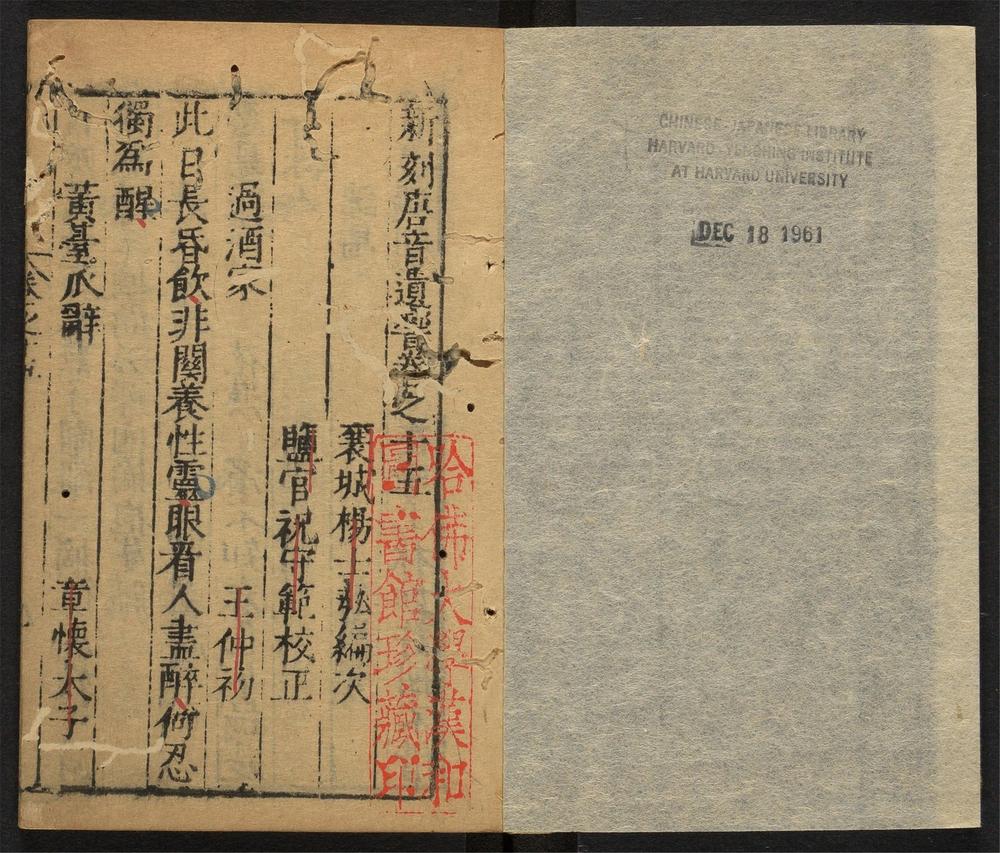 CHINESE-JAPANESE LIBRARY
HARVARD-YENCHING INSTITUTE
AT HARVARD UNIVERSITY
DEC 18 1961
哈佛大學漢和
圖書館珍藏印
新刻唐音遺響卷之十五
襄城楊士弘編次
鹽官祝守範校正
過酒家 王仲初
此日長昏飲非關養性靈眼看人盡醉何忍
獨為醒
黃臺瓜辭 章懷太子